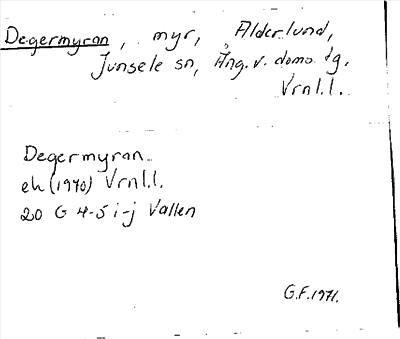 Degermyran, myr, Alderlund,
Junsele sn, Ång. v. doms. tg.
Vrnl.l.
Degermyran
ek (1970) Vrnl.l.
20 G 4-5 i-j Vallen
G.F. 1971.